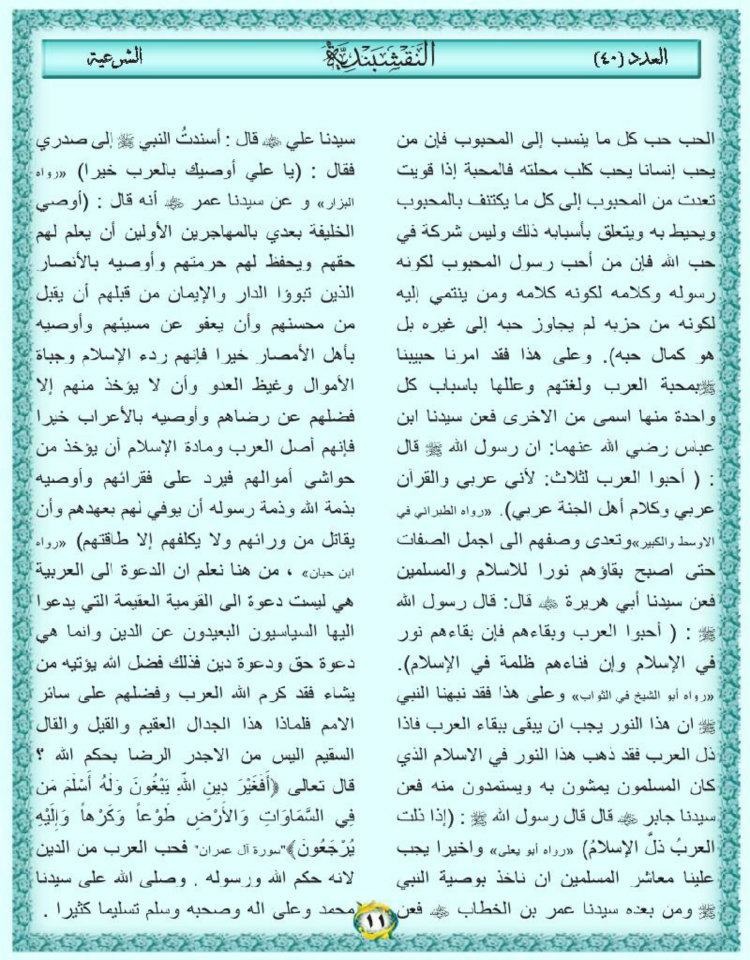 العدد (٤٠)
النقشبندية
الشرعية
الحب حب كل ما ينسب إلى المحبوب فإن من
يحب إنسانا يحب كلب محلته فالمحبة إذا قويت
تعدت من المحبوب إلى كل ما يكتنف بالمحبوب
ويحيط به ويتعلق بأسبابه ذلك وليس شركة في
حب الله فإن من أحب رسول المحبوب لكونه
رسوله وكلامه لكونه كلامه ومن ينتمي إليه
لكونه من حزبه لم يجاوز حبه إلى غيره بل
هو كمال حبه). وعلى هذا فقد امرنا حبيبنا
ﷺ بمحبة العرب ولغتهم وعللها باسباب كل
واحدة منها اسمى من الاخرى فعن سيدنا ابن
عباس رضي الله عنهما: ان رسول الله ﷺ قال
: ( أحبوا العرب لثلاث: لأني عربي والقرآن
عربي وكلام أهل الجنة عربي). «رواه الطبراني في
الاوسط والكبير»وتعدى وصفهم الى اجمل الصفات
حتى اصبح بقاؤهم نورا للاسلام والمسلمين
فعن سيدنا أبي هريرة ﷺ قال: قال رسول الله
ﷺ : ( أحبوا العرب وبقاءهم فإن بقاءهم نور
في الإسلام وإن فناءهم ظلمة في الإسلام).
«رواه أبو الشيخ في الثواب» وعلى هذا فقد نبهنا النبي
ﷺ ان هذا النور يجب ان يبقى ببقاء العرب فاذا
ذل العرب فقد ذهب هذا النور في الاسلام الذي
كان المسلمون يمشون به ويستمدون منه فعن
سيدنا جابر قال قال رسول الله ﷺ : (إذا ذلت
العربُ ذلَّ الإسلامُ) «رواه أبو يعلى» واخيرا يجب
علينا معاشر المسلمين ان ناخذ بوصية النبي
ﷺ ومن بعده سيدنا عمر بن الخطاب فعن
سيدنا علي قال : أسندتُ النبي ﷺ إلى صدري
فقال : (يا علي أوصيك بالعرب خيرا) «رواه
البزار» و عن سيدنا عمر أنه قال : (أوصي
الخليفة بعدي بالمهاجرين الأولين أن يعلم لهم
حقهم ويحفظ لهم حرمتهم وأوصيه بالأنصار
الذين تبوؤا الدار والإيمان من قبلهم أن يقبل
من محسنهم وأن يعفو عن مسيئهم وأوصيه
بأهل الأمصار خيرا فإنهم ردء الإسلام وجباة
الأموال وغيظ العدو وأن لا يؤخذ منهم إلا
فضلهم عن رضاهم وأوصيه بالأعراب خيرا
فإنهم أصل العرب ومادة الإسلام أن يؤخذ من
حواشي أموالهم فيرد على فقرائهم وأوصيه
بذمة الله وذمة رسوله أن يوفي لهم بعهدهم وأن
يقاتل من ورائهم ولا يكلفهم إلا طاقتهم) «رواه
ابن حبان» ، من هنا نعلم ان الدعوة الى العربية
هي ليست دعوة الى القومية العقيمة التي يدعوا
اليها السياسيون البعيدون عن الدين وانما هي
دعوة حق ودعوة دين فذلك فضل الله يؤتيه من
يشاء فقد كرم الله العرب وفضلهم على سائر
الامم فلماذا هذا الجدال العقيم والقيل والقال
السقيم اليس من الاجدر الرضا بحكم الله ؟
قال تعالى ﴿أَفَغَيْرَ دِينِ اللَّهِ يَبْغُونَ وَلَهُ أَسْلَمَ مَن
فِي السَّمَاوَاتِ وَالأَرْضِ طَوْعاً وَكَرْهاً وَإِلَيْهِ
يُرْجَعُونَ﴾"سورة آل عمران" فحب العرب من الدين
لانه حكم الله ورسوله . وصلى الله على سيدنا
محمد وعلى اله وصحبه وسلم تسليما كثيرا .
١١